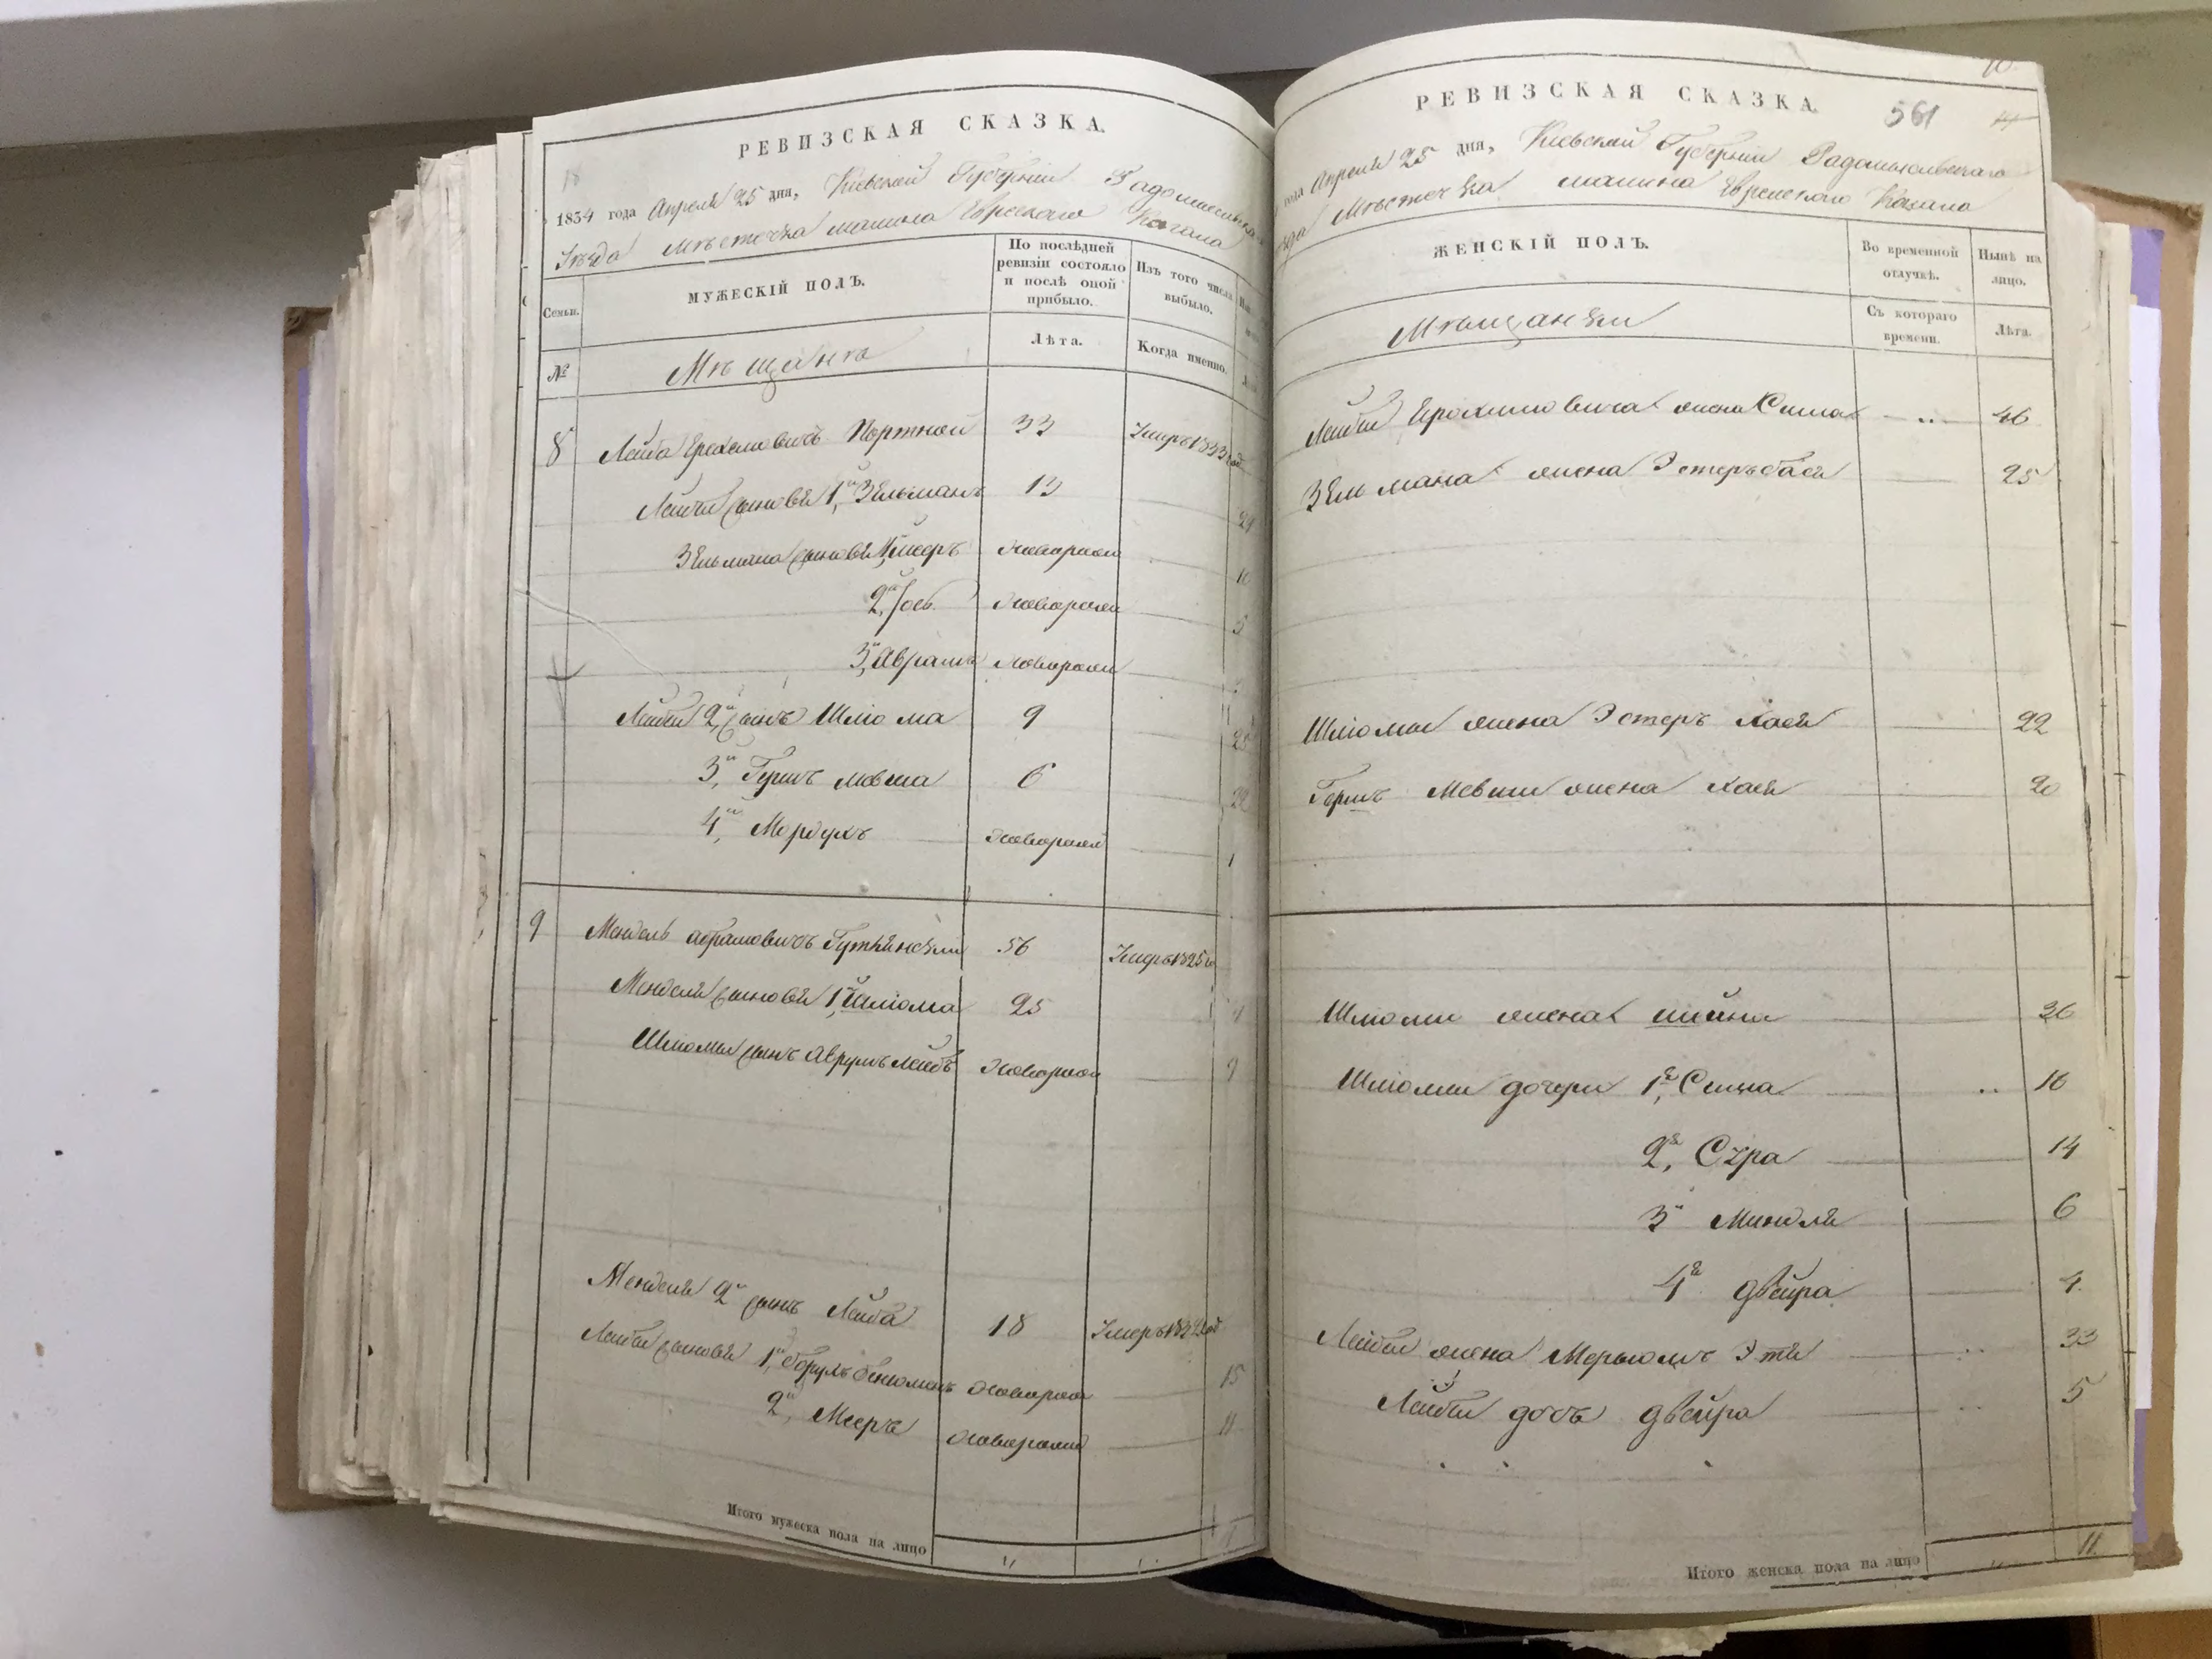 РЕВИЗСКАЯ СКАЗКА.
1834 года Апреля 25 дня, Киевской Губернии
Уезда Местечка Еврейского Кагала
Семьи.
МУЖЕСКІЙ ПОЛЪ.
По послѣдней ревизіи состояло и послѣ оной прибыло.
Изъ того числа выбыло.
№
Мѣщанѣ
Лѣта.
Когда именно.
8 Лейба Портной 33 Умеръ 1833
Лейбы сыновья 1й Зельманъ 13 29
Зельмана сыновья 1й Мееръ новорожд 10
2й новорожд 5
3й Аврамъ новорожд
Лейбы 2й сынъ Шліома 9 25
3й Гершъ Мовша 6 22
4й Мордухъ новорожд 1
9 Мендель Абрамовичъ 56 Умеръ 1825
Менделя сыновья 1й Шліома 25
Шліомы сынъ Аврумъ Лейбъ новорожд 9
Менделя 2й сынъ Лейба 18 Умеръ
Лейбы сыновья 1й новорожд 15
2й Мееръ новорожд 11
Итого мужеска пола на лицо
РЕВИЗСКАЯ СКАЗКА.
561
года Апреля 25 дня, Киевской Губерніи Радомысльскаго
Местечка Малина Еврейского Кагала
ЖЕНСКІЙ ПОЛЪ.
Во временной отлучкѣ.
Нынѣ на лицо.
Мѣщанки
Съ котораго времени.
Лѣта.
Лейбы жена Сима 46
Зельмана жена Эстеръ Бася 25
Шліомы жена Эстеръ Хая 22
Гершъ Мовши жена Хая 20
Шліомы жена 36
Шліомы дочери 1я 16
2я Сура 14
3я Миндля 6
4я Двейра 4
Лейбы жена Этя 33
Лейбы дочь Двейра 5
Итого женска пола на лицо 11